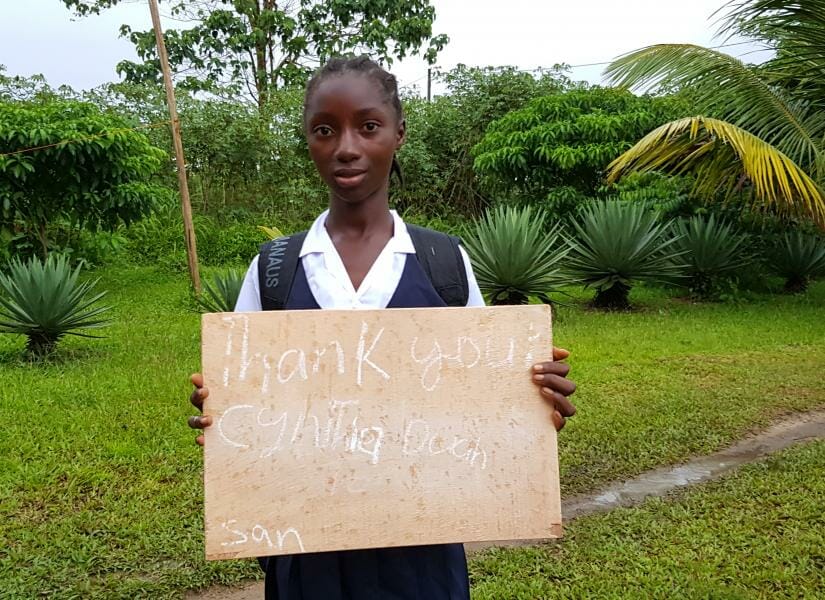 Thank you!
Cynthia Doah
san
ANAUS